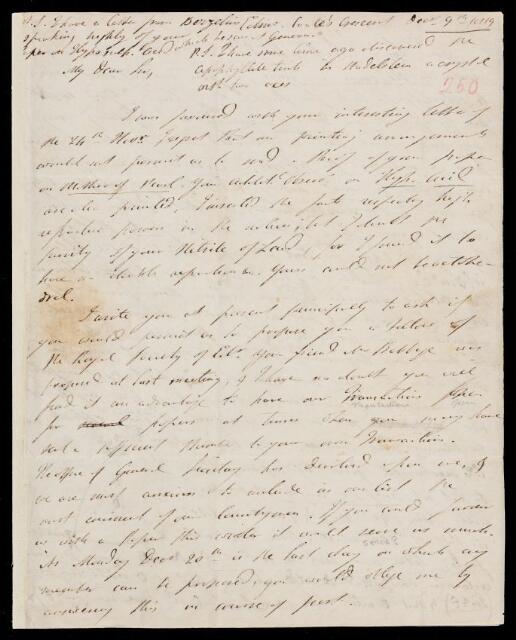 P.S. I have a letter from Berzelius Edinr. Coates Crescent Decr. 9th 1819
speaking highly of your
paper on Hyposulph. Acid which he saw at Geneva
P.S. I have some time ago discovered the
My Dear Sir, apophyllite to be in a crystal
with two axes
250
I was favoured with your interesting letter of
the 24th Novr. I regret that our printing arrangements
would not permit us to send a Proof of your paper
on Mother of Pearl. Your additl. Observ. on Hypo. acid
are also printed. I inserted the facts respecting high
refractive powers in the others, but I doubt the
purity of your Nitrate of Lead, for I found it to
have no double refraction. Yours could not be
I write you at present principally to ask if
you would permit us to propose you a fellow of
the Royal Society of Edr. Your friend Mr Babbage was
proposed at last meeting, & I have no doubt you will
find it an advantage to have our Transactions open
for papers at times when you may have
sent a sufficient number to your own Transactions.
The office of General Secretary has devolved upon me &
we are most anxious to include in our list the
most eminent of our Countrymen. If you could favour
us with a paper this winter it would serve us much.
As Monday Decr 20th is the last day on which any
member can be proposed, you would oblige me by
answering this in course of post.